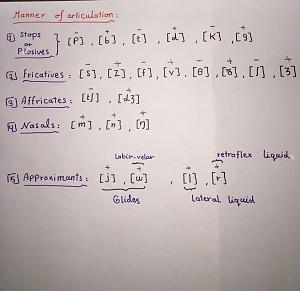 Manner of articulation:
(1) Stops or Plosives } [p̄] , [b⁺] , [t̄] , [d⁺] , [k̄] , [g⁺]
(2) Fricatives : [s̄] , [z⁺] , [f̄] , [v⁺] , [θ̄] , [ð⁺] , [ʃ̄] , [ʒ⁺]
(3) Affricates : [t̄ʃ] , [dʒ⁺]
(4) Nasals : [m⁺] , [n⁺] , [ŋ⁺]
labio-velar retroflex liquid
(5) Approximants : [j⁺] , [w⁺] , [l⁺] , [r⁺]
Glides Lateral liquid